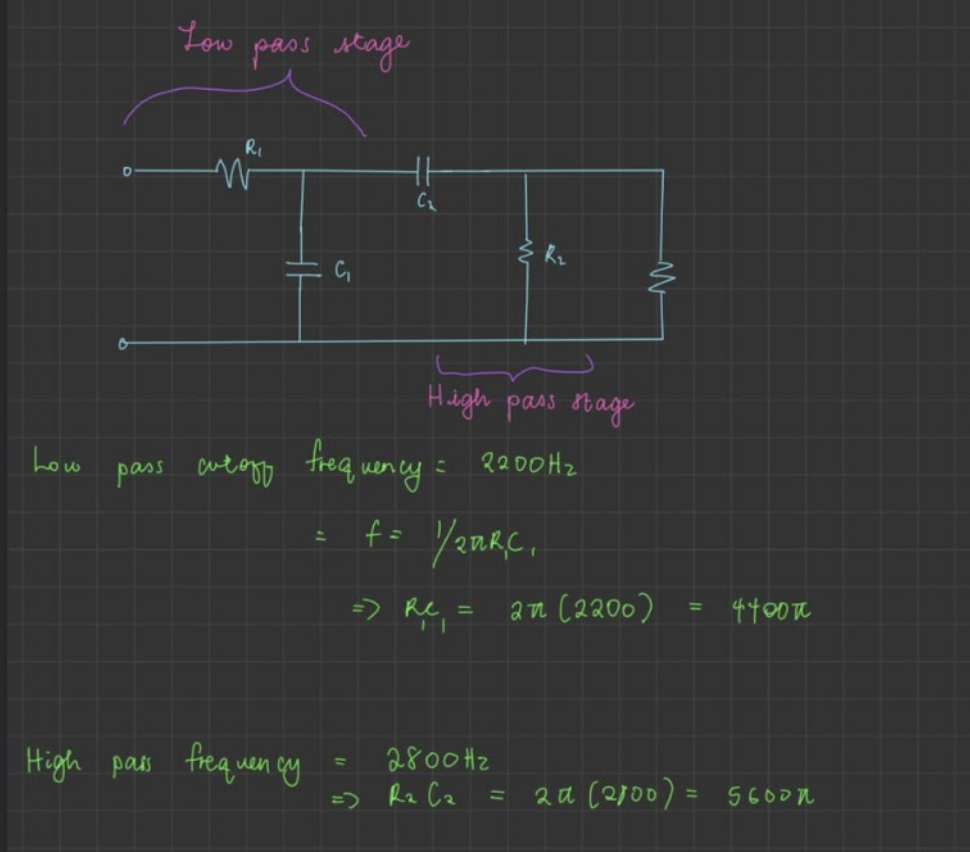 Low pass stage
R₁
C₂
C₁
R₂
High pass stage
Low pass cutoff frequency = 2200Hz
= f = 1/2πR₁C₁
=> R₁C₁ = 2π(2200) = 4400π
High pass frequency = 2800Hz
=> R₂C₂ = 2π(2800) = 5600π